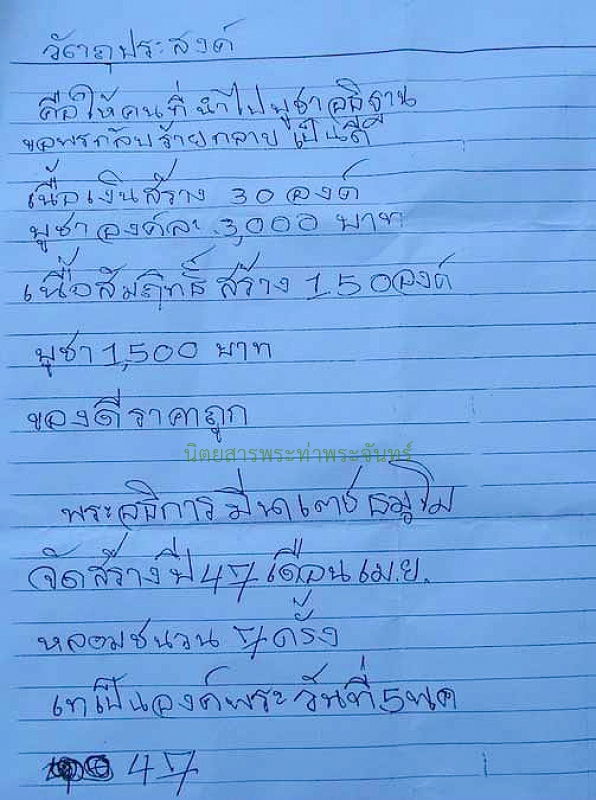 วัตถุประสงค์
คือให้คนที่นำไปบูชาอธิฐาน
ขอพรกลับร้ายกลายเป็นดี
เนื้อเงินสร้าง 30 องค์
บูชาองค์ละ 3,000 บาท
เนื้อสัมฤทธิ์ สร้าง 150 องค์
บูชา 1,500 บาท
ของดีราคาถูก
นิตยสารพระท่าพระจันทร์
พระอธิการมีนาเตช
จัดสร้างปี 47 เดือน เม.ย.
หลอมชนวน 7 ครั้ง
เทเป็นองค์พระ วันที่ 5 พค
47